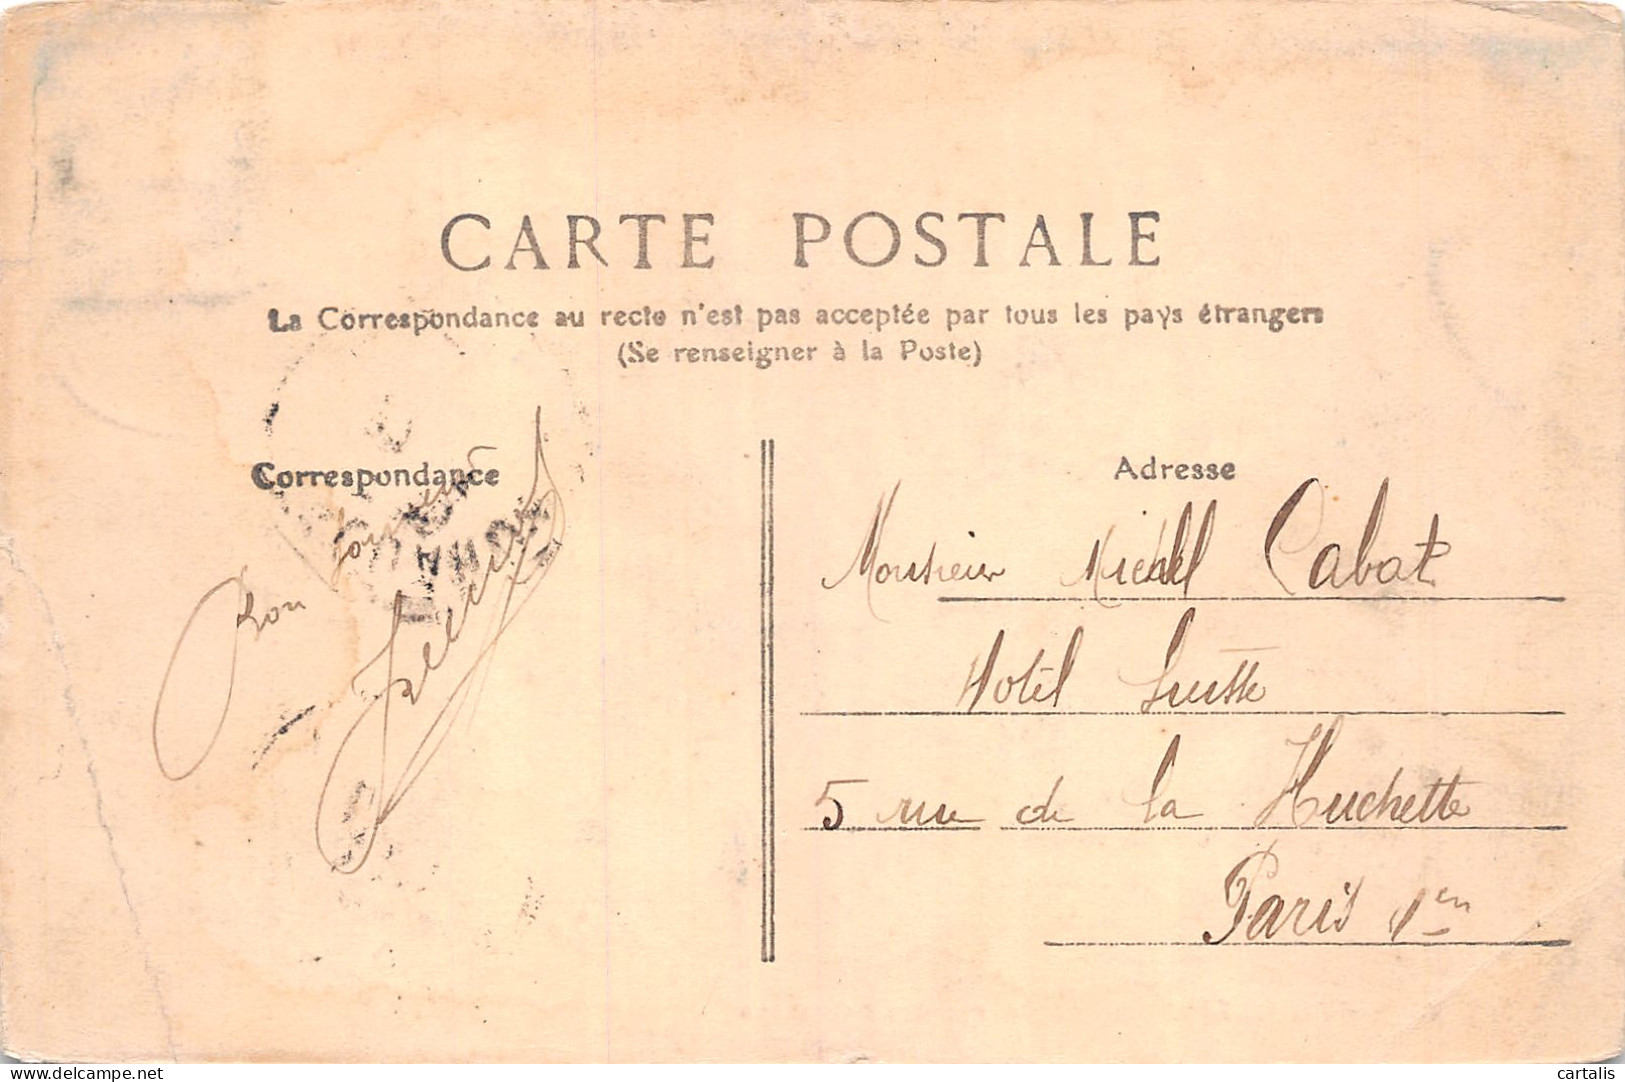 CARTE POSTALE
La Correspondance au recto n'est pas acceptée par tous les pays étrangers
(Se renseigner à la Poste)
Correspondance
Bon
Adresse
Monsieur Michel Cabat
Hotel Suisse
5 rue de la Huchette
Paris
delcampe.net
cartalis